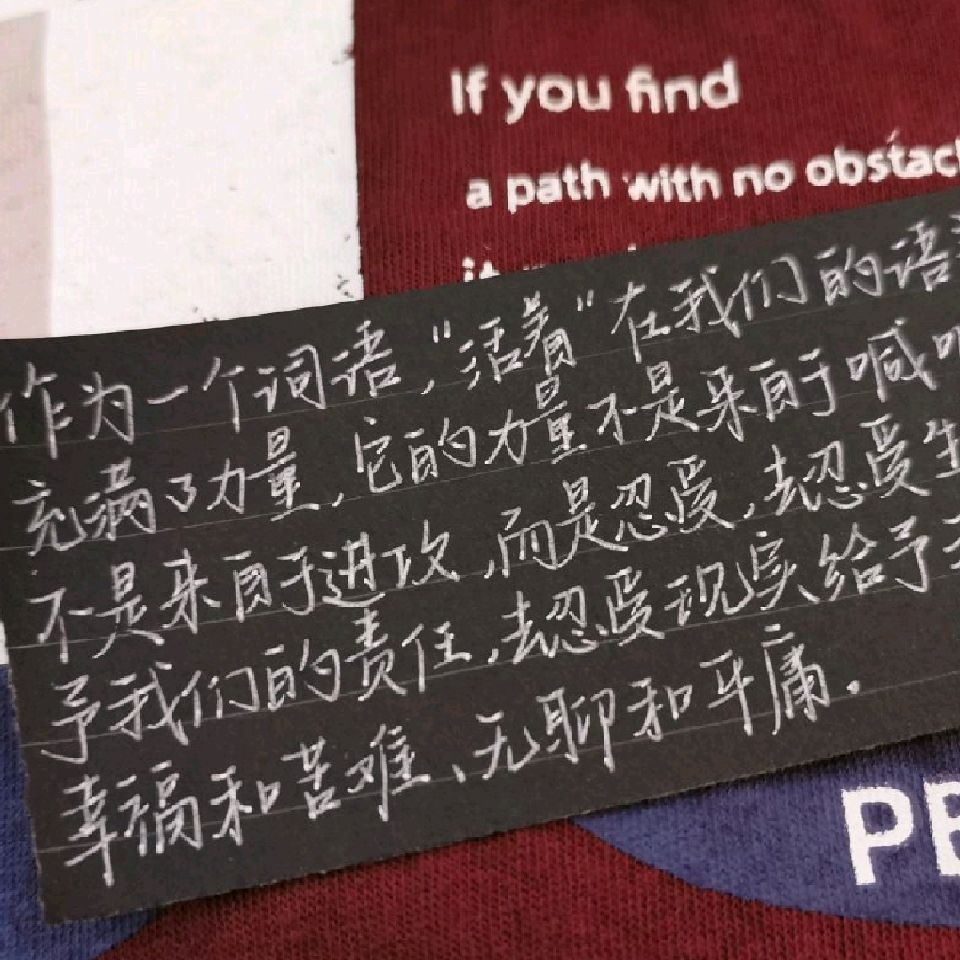 If you find
a path with no obstac
作为一个词语，“活着”在我们的语
充满了力量，它的力量不是来自于喊
不是来自于进攻，而是忍受，去忍受生
予我们的责任，去忍受现实给予
幸福和苦难、无聊和平庸.
PE